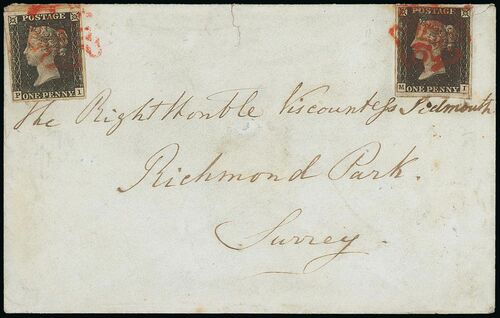 POSTAGE
P I
ONE PENNY
POSTAGE
M I
ONE PENNY
The Right Honble Viscountess Sidmouth
Richmond Park.
Surrey.